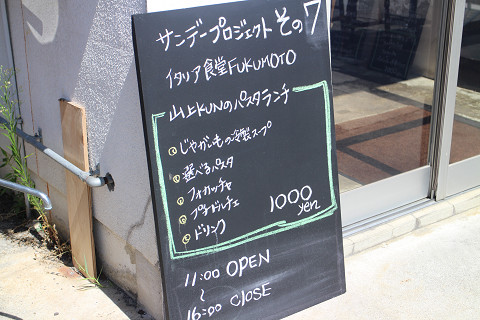 サンデープロジェクト その7
イタリア食堂FUKUMOTO
山上KUNのパスタランチ
じゃがいもの冷製スープ
選べるパスタ
フォカッチャ
プチドルチェ
ドリンク
1000 yen
11:00 OPEN
~
16:00 CLOSE